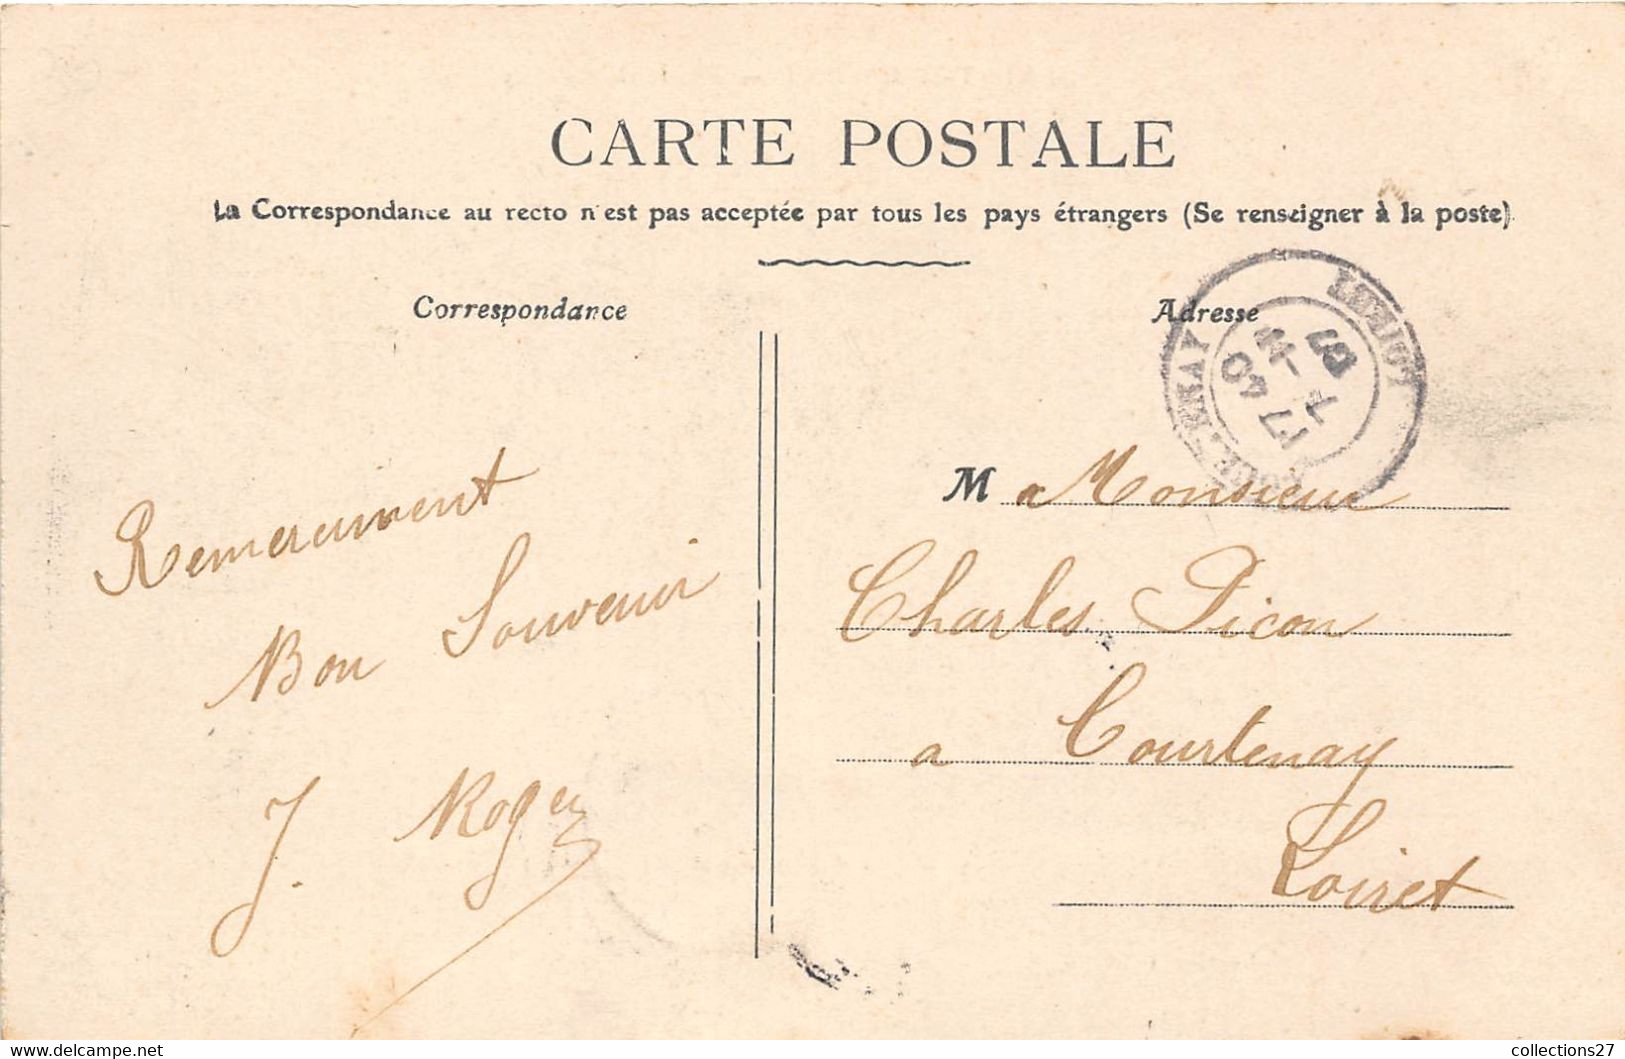 CARTE POSTALE
La Correspondance au recto n'est pas acceptée par tous les pays étrangers (Se renseigner à la poste)
Correspondance
Remerciment
Bon Souvenir
J. Roger
Adresse
M a Monsieur
Charles Picon
a Courtenay
Loiret
LOIRET
collections27